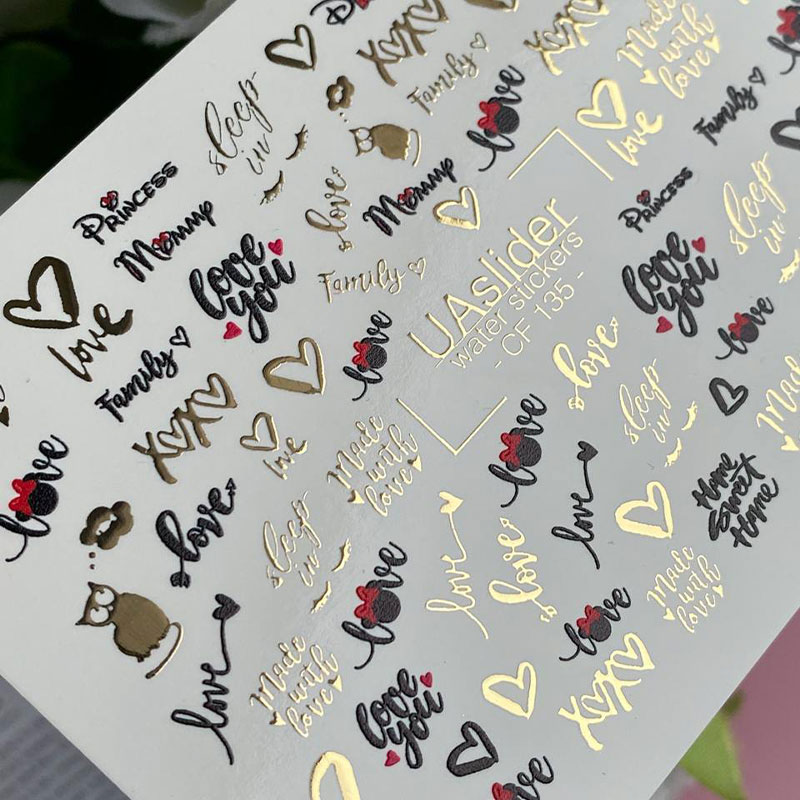 XOXO
Made
with
love
sleep
in
Family
love
Family
love
PRINCESS
love
Mommy
PRINCESS
sleep
in
Mommy
love
you
Family
UAslider
water stickers
- CF 135 -
love
you
love
love
love
love
Family
XOXO
love
Made
with
love
love
sleep
in
Made
love
love
love
sleep
in
love
love
Home
Sweet
Home
love
Made
with
love
love
Made
with
love
love
you
love
XOXO
love